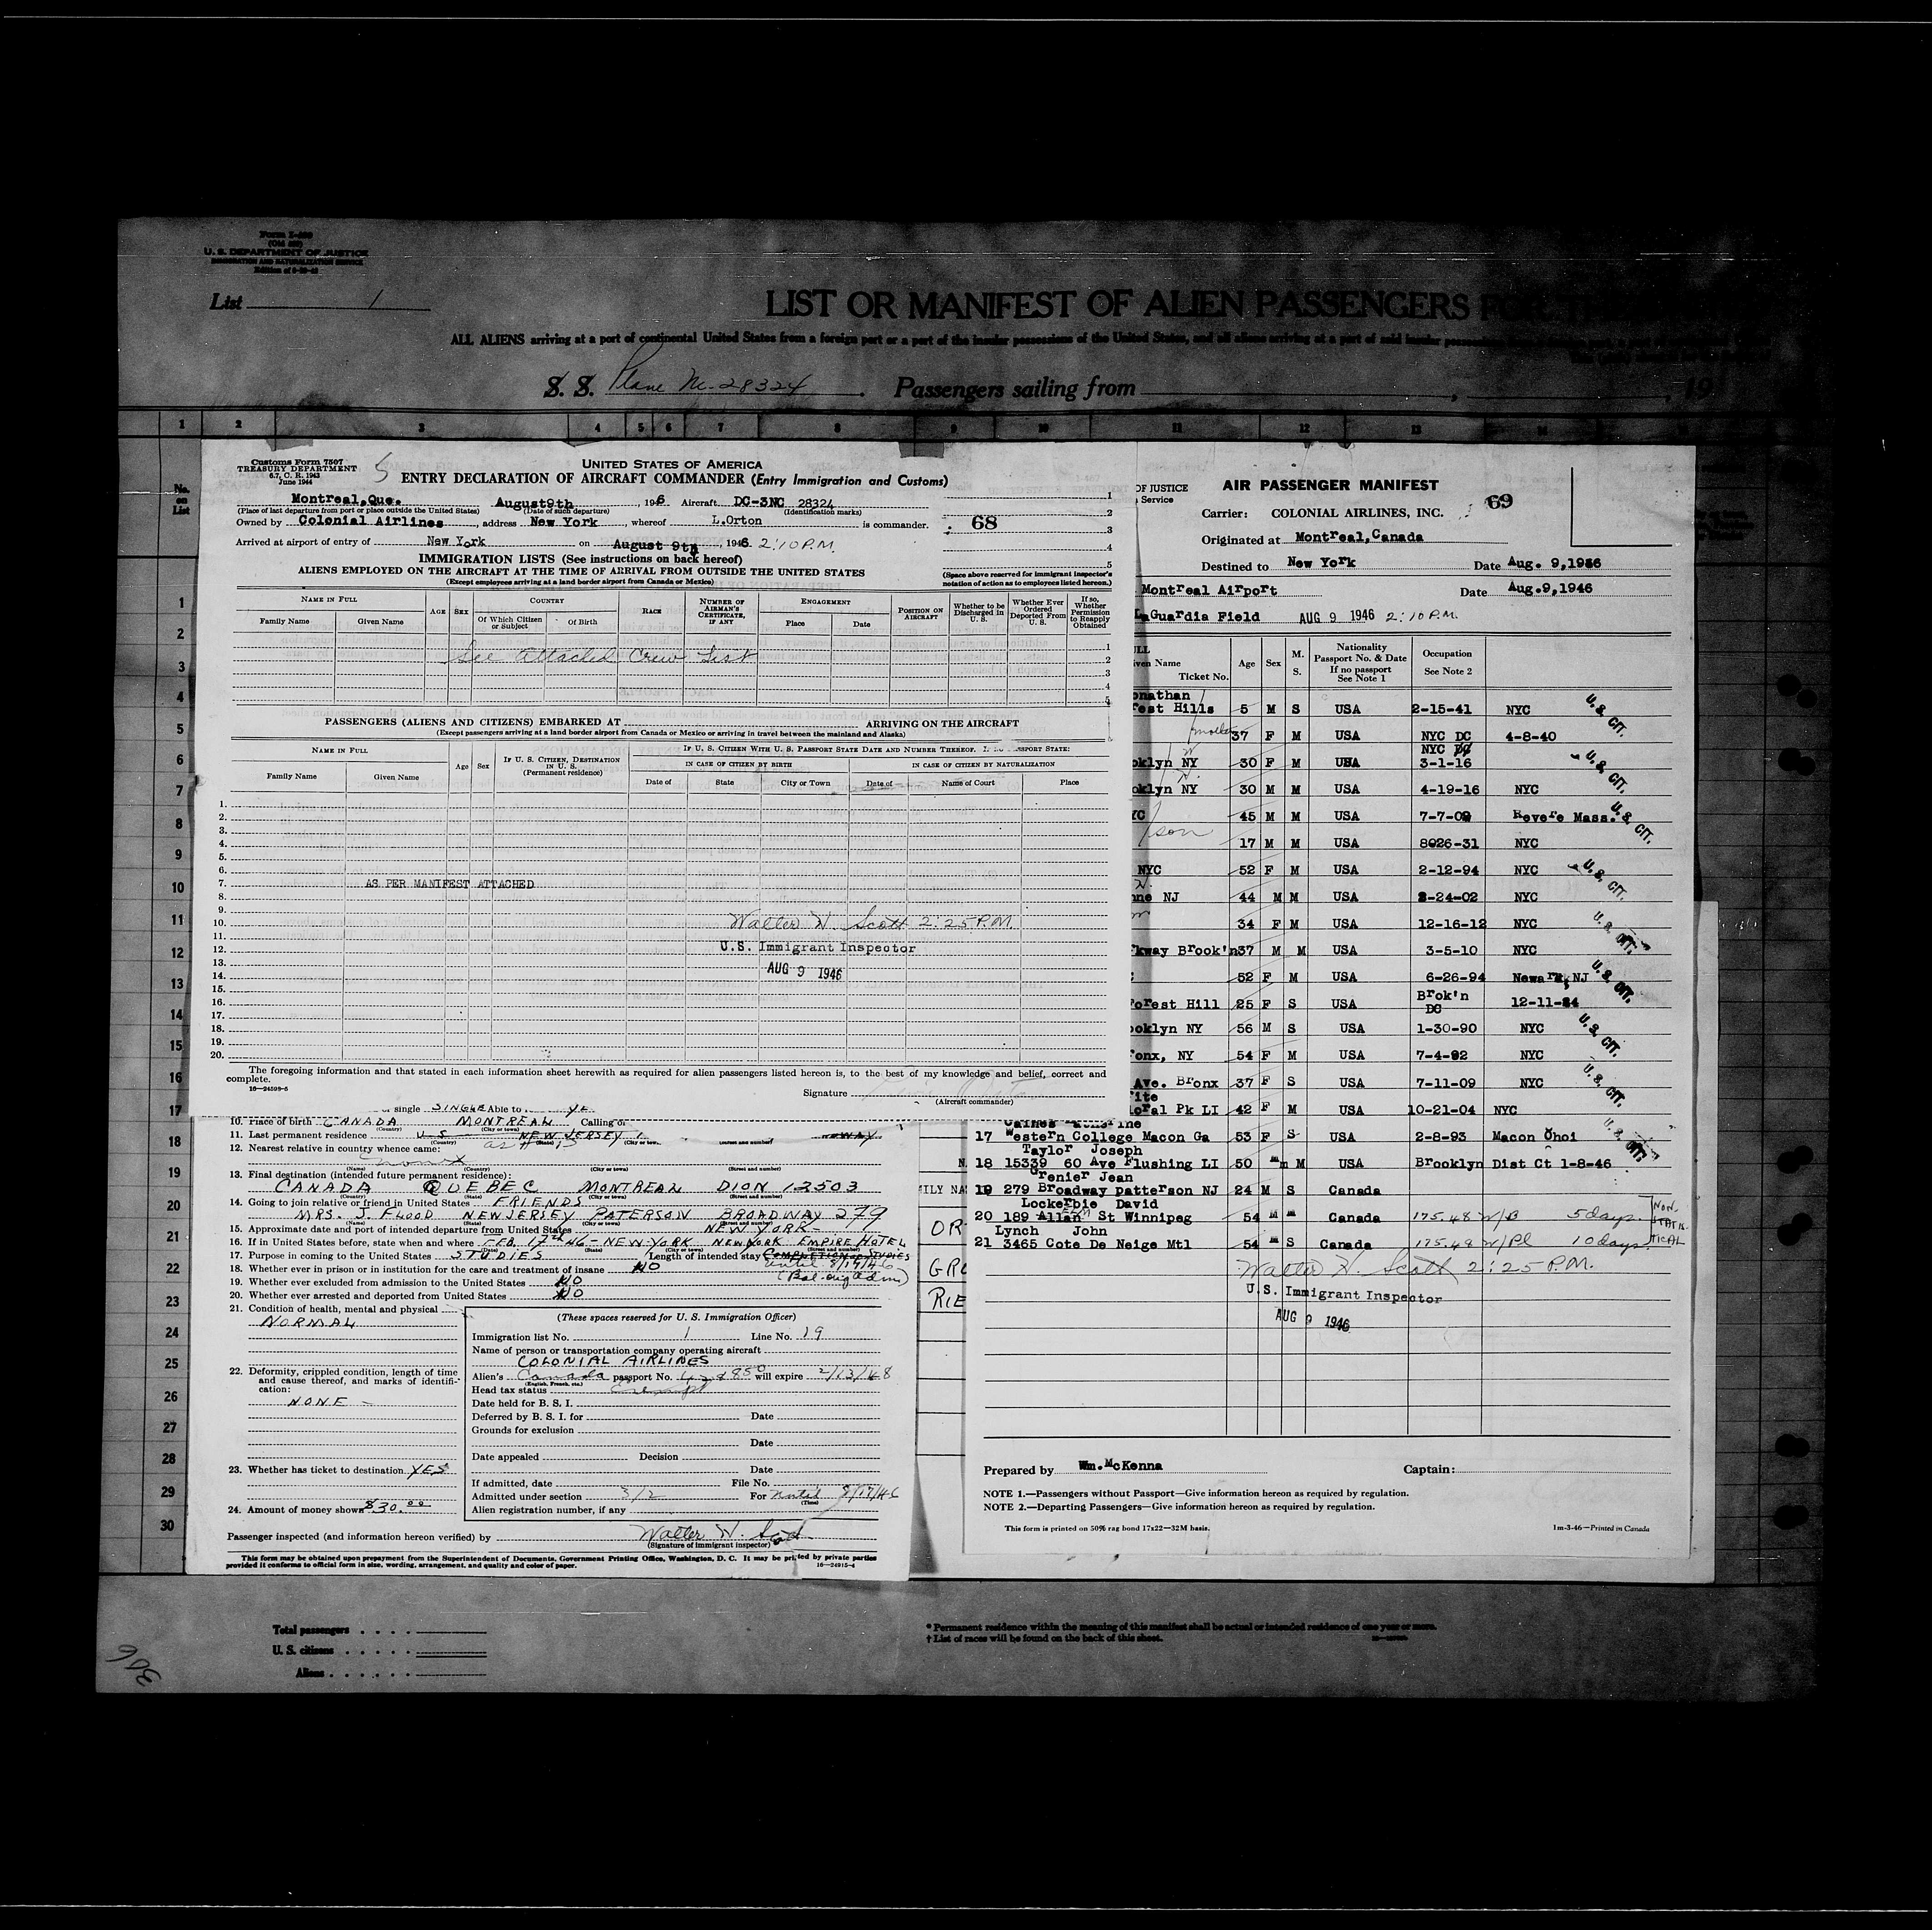 U. S. DEPARTMENT OF JUSTICE
IMMIGRATION AND NATURALIZATION SERVICE
List 1
LIST OR MANIFEST OF ALIEN PASSENGERS FOR
ALL ALIENS arriving at a port of continental United States from a foreign port or a port of the insular possessions of the United States, and all aliens arriving at a port of said insular
S. S. Plane Nc-28324. Passengers sailing from , 19
1 2 3 4 5 6 7 8 9 10 11 12 13 14
No. on List
1
2
3
4
5
6
7
8
9
10
11
12
13
14
15
16
17
18
19
20
21
22
23
24
25
26
27
28
29
30
Customs Form 7507
TREASURY DEPARTMENT
6.7, C. R. 1943
June 1944
5
UNITED STATES OF AMERICA
ENTRY DECLARATION OF AIRCRAFT COMMANDER (Entry Immigration and Customs)
Montreal,Que. August9th , 1946 Aircraft DC-3NC 28324
(Place of last departure from port or place outside the United States) (Date of such departure) (Identification marks)
Owned by Colonial Airlines, address New York, whereof L.Orton is commander.
Arrived at airport of entry of New York on August 9th, 1946 2:10 P.M.
1
2
68
3
4
5
(Space above reserved for immigrant inspector's notation of action as to employees listed hereon.)
IMMIGRATION LISTS (See instructions on back hereof)
ALIENS EMPLOYED ON THE AIRCRAFT AT THE TIME OF ARRIVAL FROM OUTSIDE THE UNITED STATES
(Except employees arriving at a land border airport from Canada or Mexico)
NAME IN FULL
Family Name Given Name
AGE SEX
COUNTRY
Of Which Citizen or Subject Of Birth
RACE
NUMBER OF AIRMAN'S CERTIFICATE, IF ANY
ENGAGEMENT
Place Date
POSITION ON AIRCRAFT
Whether to be Discharged in U. S.
Whether Ever Ordered Deported From U. S.
If so, Whether Permission to Reapply Obtained
See attached Crew List
1
2
3
4
5
PASSENGERS (ALIENS AND CITIZENS) EMBARKED AT ARRIVING ON THE AIRCRAFT
(Except passengers arriving at a land border airport from Canada or Mexico or arriving in travel between the mainland and Alaska)
NAME IN FULL
Family Name Given Name
Age Sex
IF U. S. CITIZEN, DESTINATION IN U. S.
(Permanent residence)
IF U. S. CITIZEN WITH U. S. PASSPORT STATE DATE AND NUMBER THEREOF. IF NO PASSPORT STATE:
IN CASE OF CITIZEN BY BIRTH IN CASE OF CITIZEN BY NATURALIZATION
Date of State City or Town Date of Name of Court Place
1.
2.
3.
4.
5.
6.
7. AS PER MANIFEST ATTACHED
8.
9.
10. Walter N. Scott 2:25 P.M.
11.
12. U.S. Immigrant Inspector
13.
14. AUG 9 1946
15.
16.
17.
18.
19.
20.
The foregoing information and that stated in each information sheet herewith as required for alien passengers listed hereon is, to the best of my knowledge and belief, correct and complete.
16-24598-5
Signature
(Aircraft commander)
or single SINGLE Able to
10. Place of birth CANADA MONTREAL Calling or
(Country) (City or town)
11. Last permanent residence U.S. NEW JERSEY
12. Nearest relative in country whence came: as # 13
(Name) (Country) (City or town) (Street and number)
13. Final destination (intended future permanent residence):
CANADA QUEBEC MONTREAL DION 12503
(Country) (State) (City or town) (Street and number)
14. Going to join relative or friend in United States FRIENDS
MRS. J. FLOOD NEW JERSEY PATERSON BROADWAY 279
(Name) (State) (City or town) (Street and number)
15. Approximate date and port of intended departure from United States NEW YORK-
16. If in United States before, state when and where FEB. 17th 46-NEW YORK NEW YORK EMPIRE HOTEL
(Date) (State) (City or town) (Street and number)
17. Purpose in coming to the United States STUDIES Length of intended stay COMPLETION of STUDIES
until 8/17/46
18. Whether ever in prison or in institution for the care and treatment of insane NO
(Bal. orig adm)
19. Whether ever excluded from admission to the United States NO
20. Whether ever arrested and deported from United States NO
21. Condition of health, mental and physical
NORMAL
22. Deformity, crippled condition, length of time and cause thereof, and marks of identification:
NONE -
23. Whether has ticket to destination YES
24. Amount of money shown $30.00
(These spaces reserved for U. S. Immigration Officer)
Immigration list No. 1 Line No. 19
Name of person or transportation company operating aircraft
COLONIAL AIRLINES
Alien's Canada passport No. will expire 2/13/48
(English, French, etc.)
Head tax status Exempt
Date held for B. S. I.
Deferred by B. S. I. for Date
Grounds for exclusion
Date
Date appealed Decision
Date
If admitted, date File No.
Admitted under section 3/2 For until 8/17/46
(Time)
Alien registration number, if any
Passenger inspected (and information hereon verified) by Walter N. Scott
(Signature of immigrant inspector)
This form may be obtained upon prepayment from the Superintendent of Documents, Government Printing Office, Washington, D. C. It may be printed by private parties
provided it conforms to official form in size, wording, arrangement, and quality and color of paper.
16-24915-4
OR
GRE
RIE
OF JUSTICE
Service
AIR PASSENGER MANIFEST
69
Carrier: COLONIAL AIRLINES, INC.
Originated at Montreal,Canada
Destined to New York Date Aug. 9,1946
Montreal Airport Date Aug.9,1946
LaGuardia Field AUG 9 1946 2:10 P.M.
Given Name
Ticket No.
Age Sex M. S.
Nationality
Passport No. & Date
If no passport
See Note 1
Occupation
See Note 2
onathan
rest Hills 5 M S USA 2-15-41 NYC U.S. CIT.
mother 37 F M USA NYC DC 4-8-40
NYC DC
oklyn NY 30 F M USA 3-1-16 U.S. CIT.
oklyn NY 30 M M USA 4-19-16 NYC
YC 45 M M USA 7-7-0 Revere Mass. U.S. CIT.
son 17 M M USA 8026-31 NYC
NYC 52 F M USA 2-12-94 NYC U.S. CIT.
nne NJ 44 M M USA 8-24-02 NYC
34 F M USA 12-16-12 NYC U.S. CIT.
rkway Brook'n37 M M USA 3-5-10 NYC
52 F M USA 6-26-94 Newark,NJ U.S. CIT.
Forest Hill 25 F S USA Brok'n DC 12-11-
oklyn NY 56 M S USA 1-30-90 NYC U.S. CIT.
onx, NY 54 F M USA 7-4-92 NYC
Ave. Bronx 37 F S USA 7-11-09 NYC U.S. CIT.
ite
loral Pk LI 42 F M USA 10-21-04 NYC
17 Western College Macon Ga 53 F S USA 2-8-93 Macon Ohoi U.S. CIT.
Taylor Joseph
18 15339 60 Ave Flushing LI 50 m M USA Brooklyn Dist Ct 1-8-46
Grenier Jean
19 279 Broadway patterson NJ 24 M S Canada
Lockerbie David
20 189 Allan St Winnipeg 54 M m Canada 175.48 W/B 5 days
Lynch John
21 3465 Cote De Neige Mtl 54 m S Canada 175.48 W/Pl 10 days
NON-STATISTICAL
Walter N. Scott 2:25 P.M.
U.S. Immigrant Inspector
AUG 9 1946
Prepared by Wm.McKenna Captain:
NOTE 1.—Passengers without Passport—Give information hereon as required by regulation.
NOTE 2.—Departing Passengers—Give information hereon as required by regulation.
This form is printed on 50% rag bond 17x22—32M basis. 1m-3-46—Printed in Canada
Total passengers
U. S. citizens
Aliens
* Permanent residence within the meaning of this manifest shall be actual or intended residence of one year or more.
† List of races will be found on the back of this sheet.
306